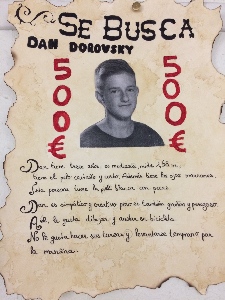 SE BUSCA
DAN DOROVSKY
500€
500€
Dan tiene trece años, es moldavo, mide 1,58 m.,
tiene el pelo castaño y corto. Además tiene los ojos marrones.
Esta persona tiene la piel blanca con pecas.
Dan es simpático y creativo pero es también gruñón y perezoso.
A él, le gusta dibujar y andar en bicicleta.
No le gusta hacer sus tareas y levantarse temprano por
la mañana.